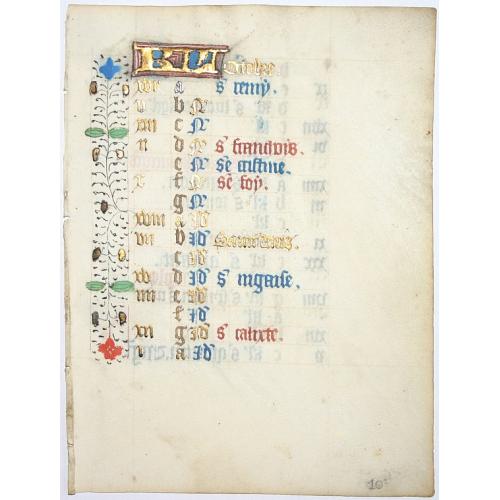 KL Octobre
xvi a s remy.
v b N
xiii c N
ii d N s franchoys.
e N sē cristine.
x f N sē foy.
g N
xviii a Id
vii b Id Saint denis
c Id
xv d Id s nigaise.
iiii e Id
f Id
xii g Id s calixte.
i a Id
10